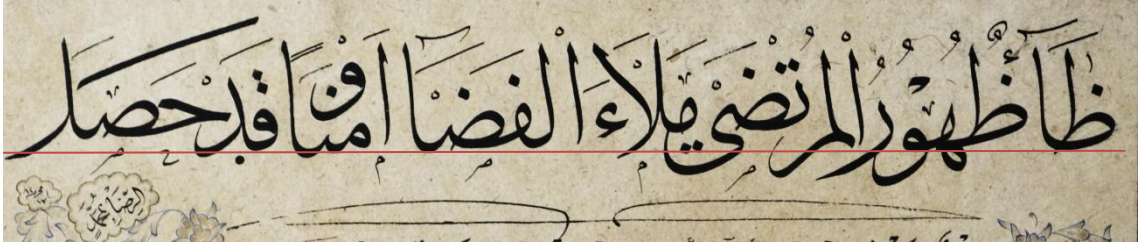 ظَآءُ ظُهُوْرُ الْمُرْتَضىٰ مِلَاءَ الْفَضَآ اَمْنًا وَقَدْ حَصَلَ